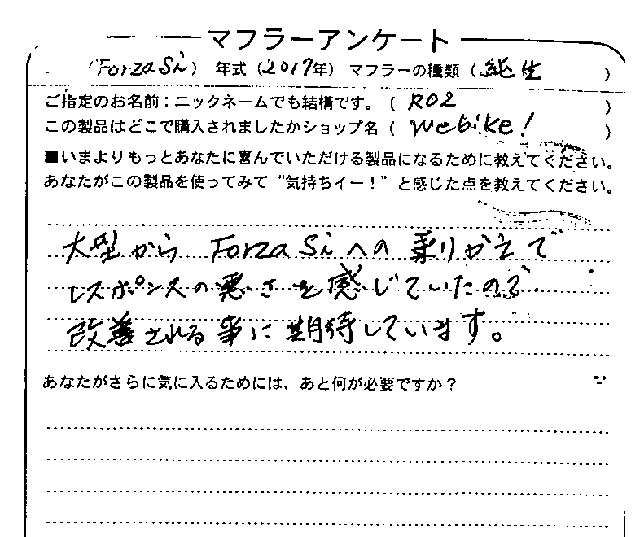 マフラーアンケート
(Forza Si) 年式 (2017年) マフラーの種類 (純生)
ご指定のお名前:ニックネームでも結構です。( R02 )
この製品はどこで購入されましたかショップ名 ( Webike! )
■いまよりもっとあなたに喜んでいただける製品になるために教えてください。
あなたがこの製品を使ってみて“気持ちイー!”と感じた点を教えてください。
大型から Forza Siへの 乗りかえで
レスポンスの悪さを感じていたので
改善される事に期待しています。
あなたがさらに気に入るためには、あと何が必要ですか?